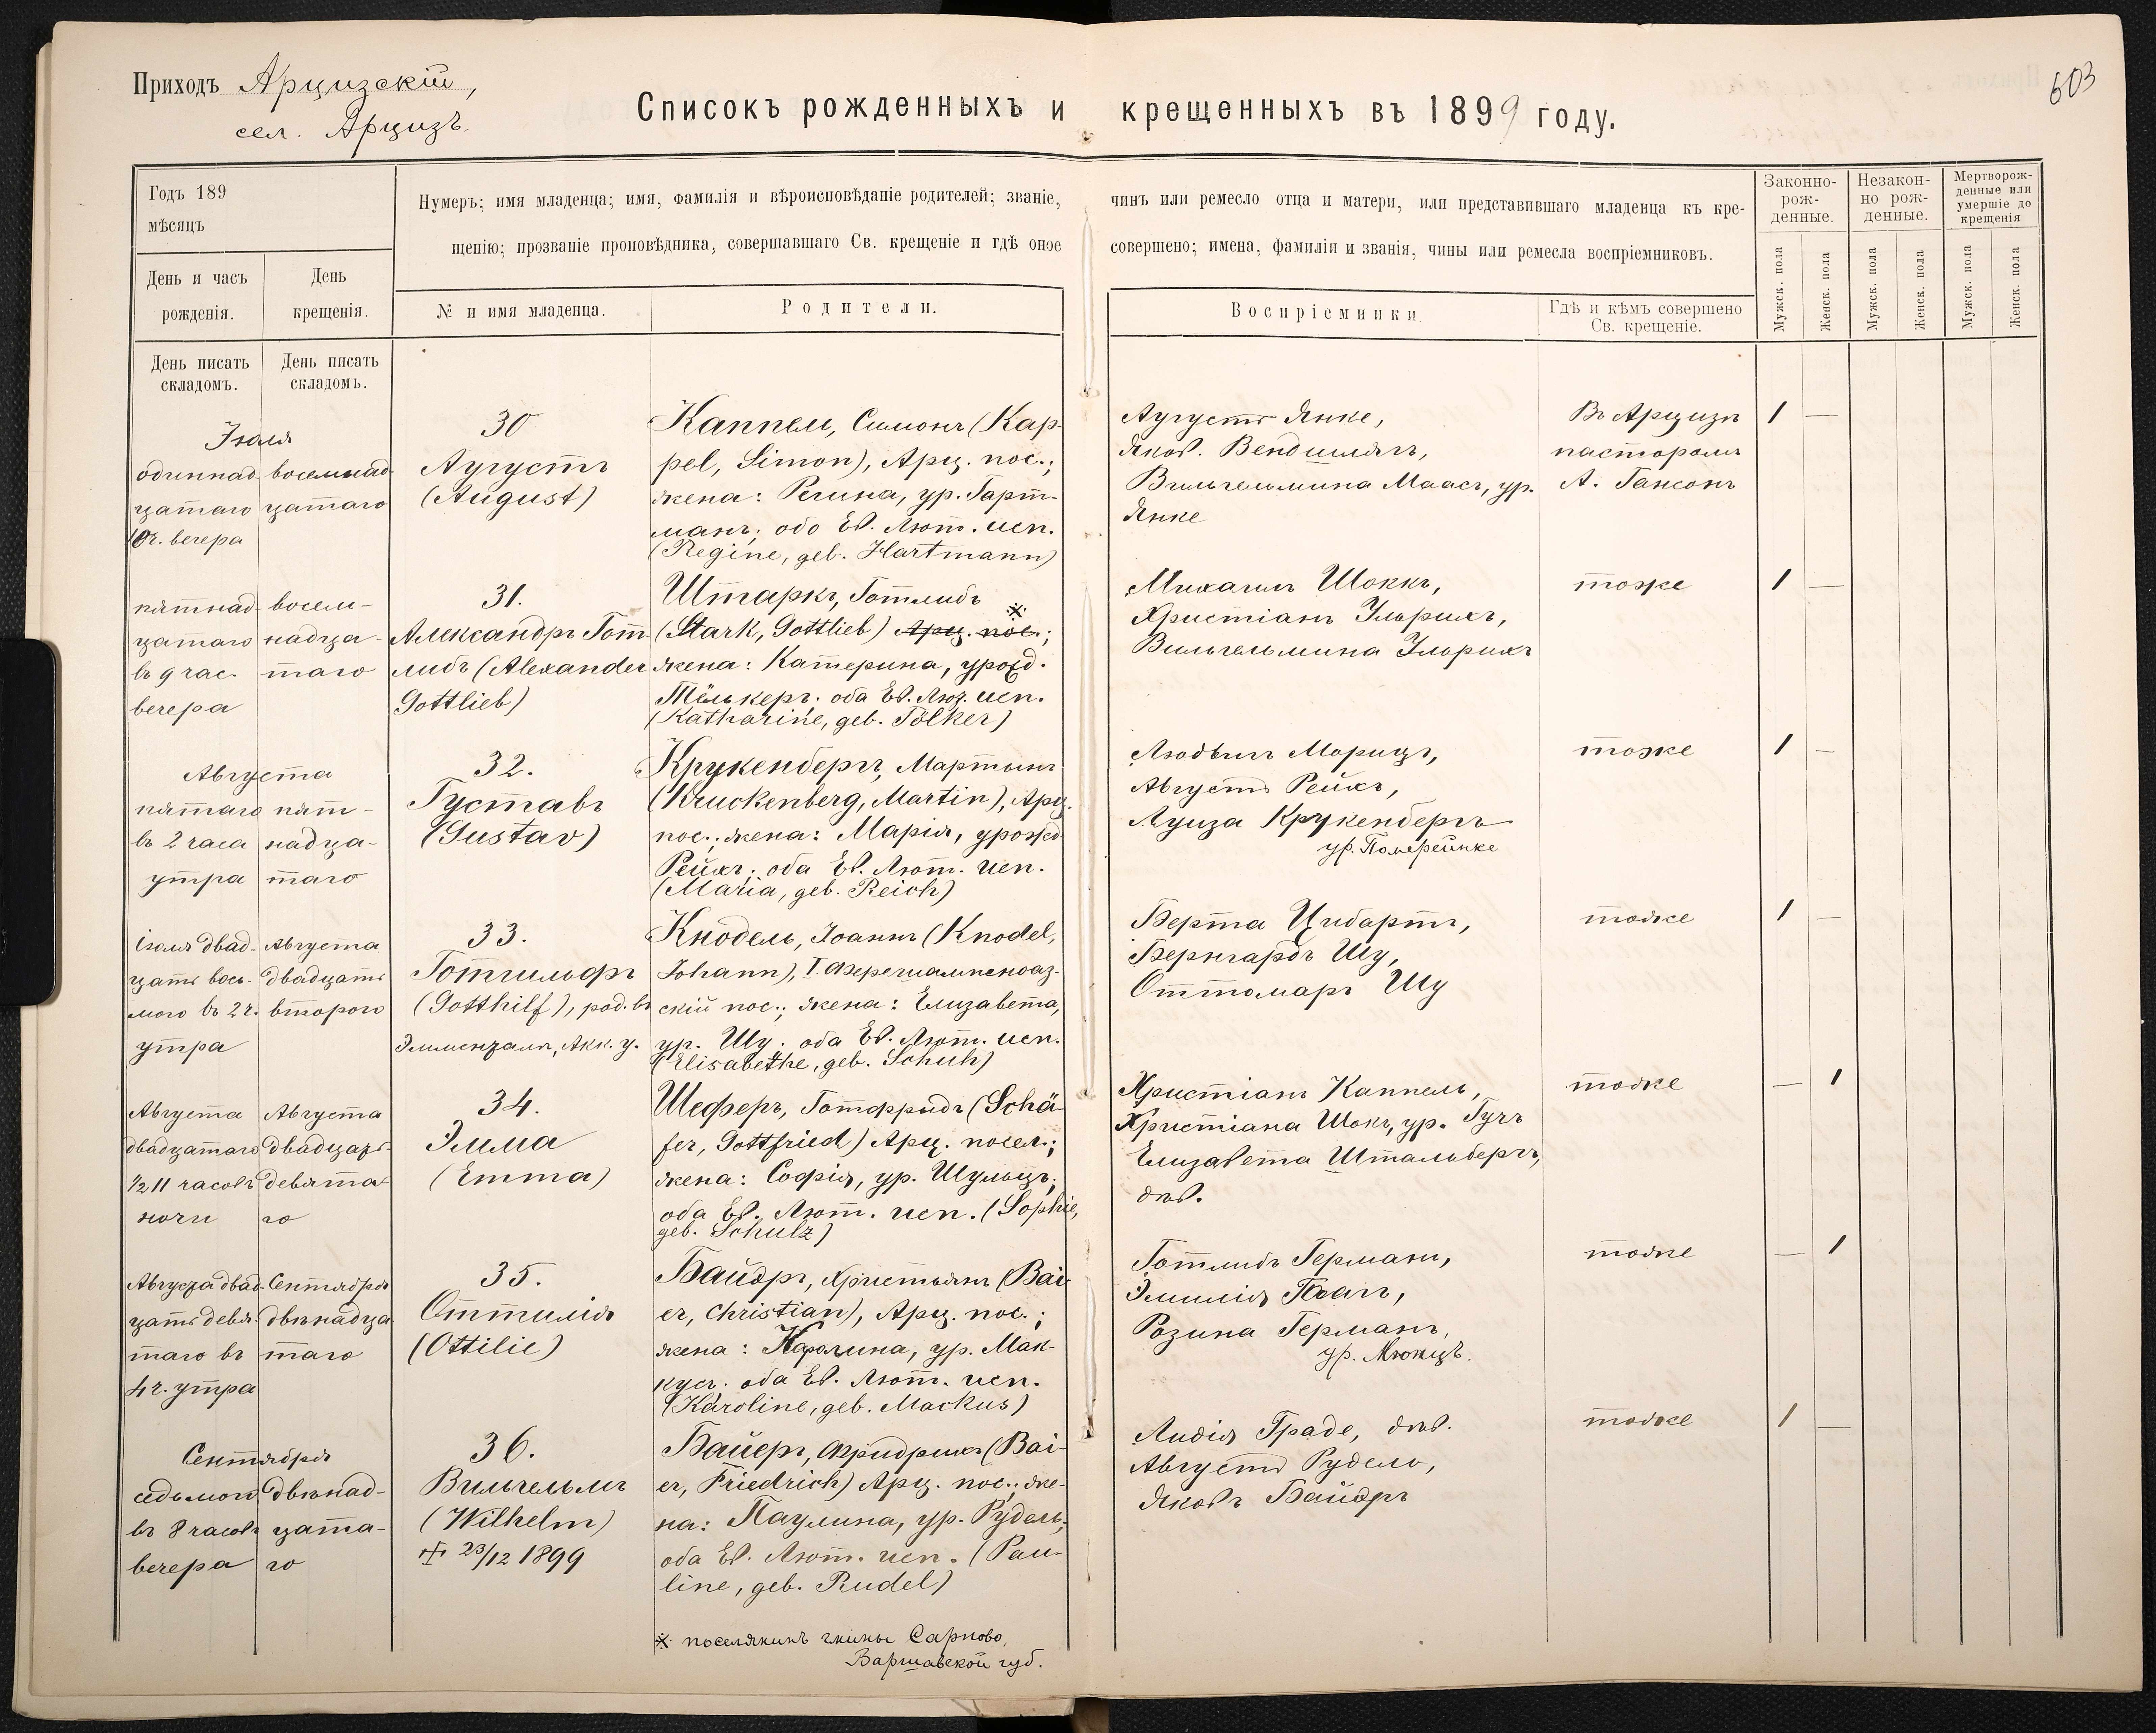 Приходъ Арцизскій,
сел. Арцизъ.
603
Списокъ рожденныхъ и крещенныхъ въ 1899 году.
Годъ 189
мѣсяцъ
День и часъ
рожденія.
День
крещенія.
Нумеръ; имя младенца; имя, фамилія и вѣроисповѣданіе родителей; званіе, чинъ или ремесло отца и матери, или представившаго младенца къ кре-
щенію; прозваніе проповѣдника, совершавшаго Св. крещеніе и гдѣ оное совершено; имена, фамиліи и званія, чины или ремесла воспріемниковъ.
№ и имя младенца.
Родители.
Воспріемники
Гдѣ и кѣмъ совершено
Св. крещеніе.
Законно-
рож-
денные.
Незакон-
но рож-
денные.
Мертворож-
денные или
умершіе до
крещенія
Мужск. пола
Женск. пола
Мужск. пола
Женск. пола
Мужск. пола
Женск. пола
День писать
складомъ.
День писать
складомъ.
Іюля
одиннад-
цатаго
10 ч. вечера
восемнад-
цатаго
30
Аугустъ
(August)
Каппель, Симонъ (Kap-
pel, Simon), Арц. пос.;
жена: Регина, ур. Гарт-
манъ; обо Ев. Лют. исп.
(Regine, geb. Hartmann)
Аугустъ Янке,
Яков. Вендшлягъ,
Вильгельмина Маасъ, ур.
Янке
Въ Арцизѣ
пасторомъ
А. Гансонъ
1 —
пятнад-
цатаго
въ 9 час.
вечера
восем-
надца-
таго
31.
Александръ Гот-
либъ (Alexander
Gottlieb)
Штаркъ, Готлибъ
(Stark, Gottlieb) Арц. пос. ※;
жена: Катерина, урожд.
Тёлькеръ; оба Ев. Лют. исп.
(Katharine, geb. Tölker)
Михаилъ Шоккъ,
Христіанъ Ульрихъ,
Вильгельмина Ульрихъ
тоже
1 —
Августа
пятаго
въ 2 часа
утра
пят-
надца-
таго
32.
Густавъ
(Gustav)
Крукенбергъ, Мартынъ
(Kruckenberg, Martin), Арц.
пос.; жена: Марія, урожд.
Рейхъ; оба Ев. Лют. исп.
(Maria, geb. Reich)
Людвигъ Морицъ,
Августъ Рейхъ,
Луиза Крукенбергъ
ур. Помрейнке
тоже
1 —
Іюля двад-
цать вось-
мого въ 2 ч.
утра
Августа
двадцать
второго
33.
Готгильфъ
(Gotthilf), род. въ
Эммента​лѣ, Акк. у.
Кнодель, Іоаннъ (Knodel,
Johann), I. Фершампенуаз-
скій пос.; жена: Елизавета,
ур. Шу; оба Ев. Лют. исп.
(Elisabethe, geb. Schuh)
Берта Цибартъ,
Бернгардъ Шу,
Оттомаръ Шу
тоже
1 —
Августа
двадцатаго
1/2 11 часовъ
ночи
Августа
двадцать
девята-
го
34.
Эмма
(Emma)
Шеферъ, Готфридъ (Schä-
fer, Gottfried) Арц. посел.;
жена: Софія, ур. Шульцъ;
оба Ев. Лют. исп. (Sophie,
geb. Schulz)
Христіанъ Каппель,
Христіана Шокъ, ур. Гучъ
Елизавета Штальбергъ,
дѣв.
тоже
— 1
Августа двад-
цать девя-
таго въ
4 ч. утра
Сентября
двѣнадца
таго
35.
Оттилія
(Ottilie)
Байэръ, Христьянъ (Bai-
er, Christian), Арц. пос.;
жена: Каролина, ур. Мак-
кусъ; оба Ев. Лют. исп.
(Karoline, geb. Mackus)
Готлибъ Германъ,
Эмилія
Розина Германъ,
ур. Мюнцъ.
тоже
— 1
Сентября
седьмого
въ 8 часовъ
вечера
двѣнад-
цата-
го
36.
Вильгельмъ
(Wilhelm)
23/12 1899
Байеръ, Фридрихъ (Bai-
er, Friedrich) Арц. пос.; же-
на: Паулина, ур. Рудель;
оба Ев. Лют. исп. (Pau-
line, geb. Rudel)
Лидія Граде, дѣв.
Августъ Рудель,
Яковъ Байэръ
тоже
1 —
※ поселянинъ гмины Сарново,
Варшавской губ.